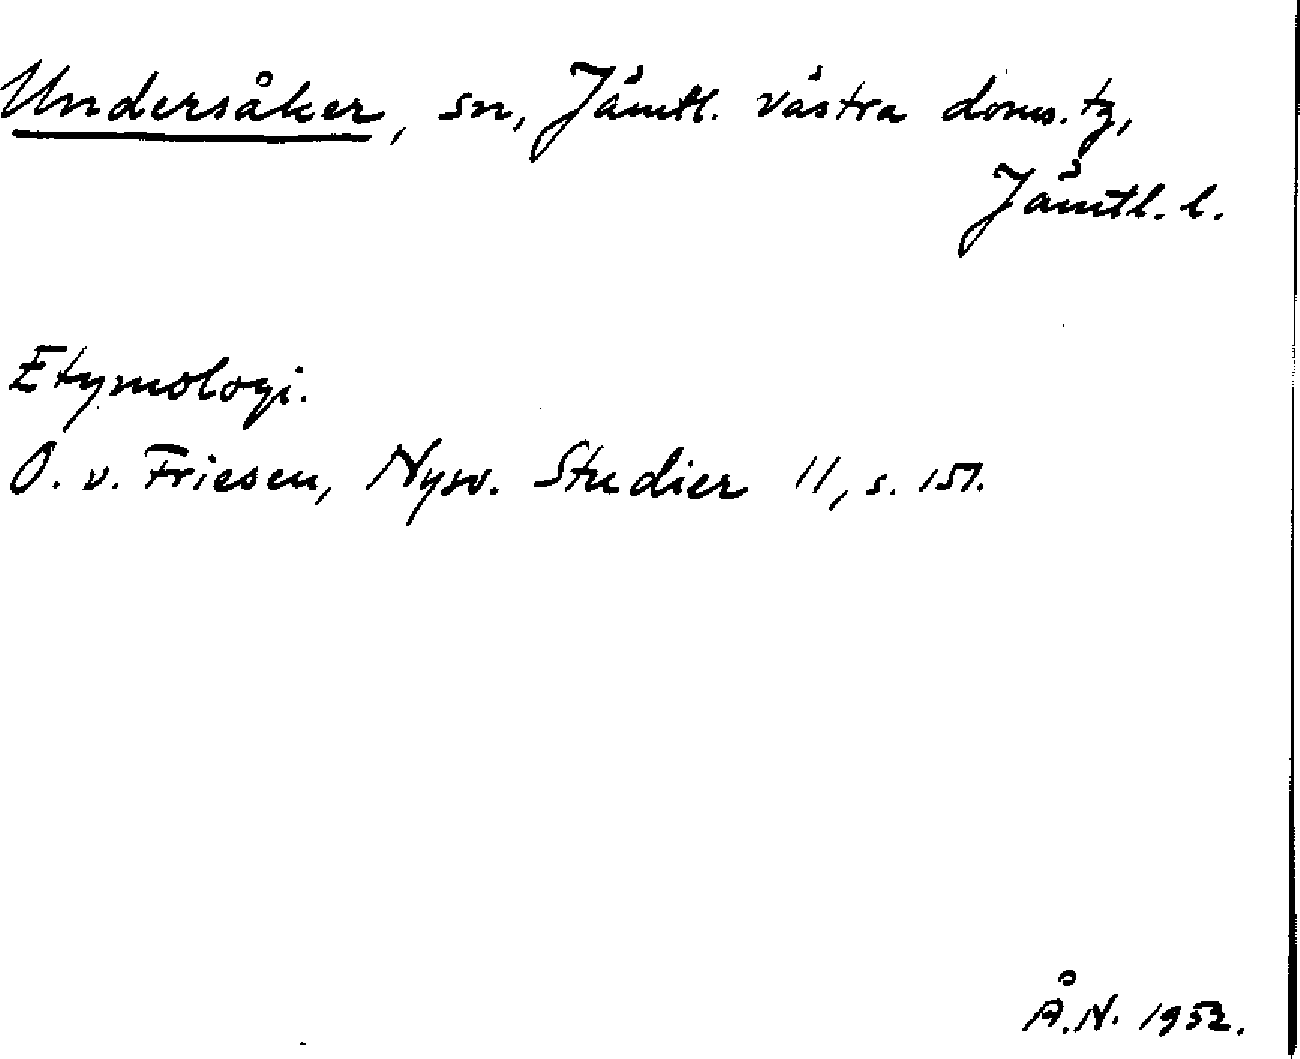 Undersåker, sn, Jämtl. västra doms. tg,
Jämtl. l.
Etymologi.
O. v. Friesen, Nysv. Studier 11, s. 157.
Å.N. 1952.